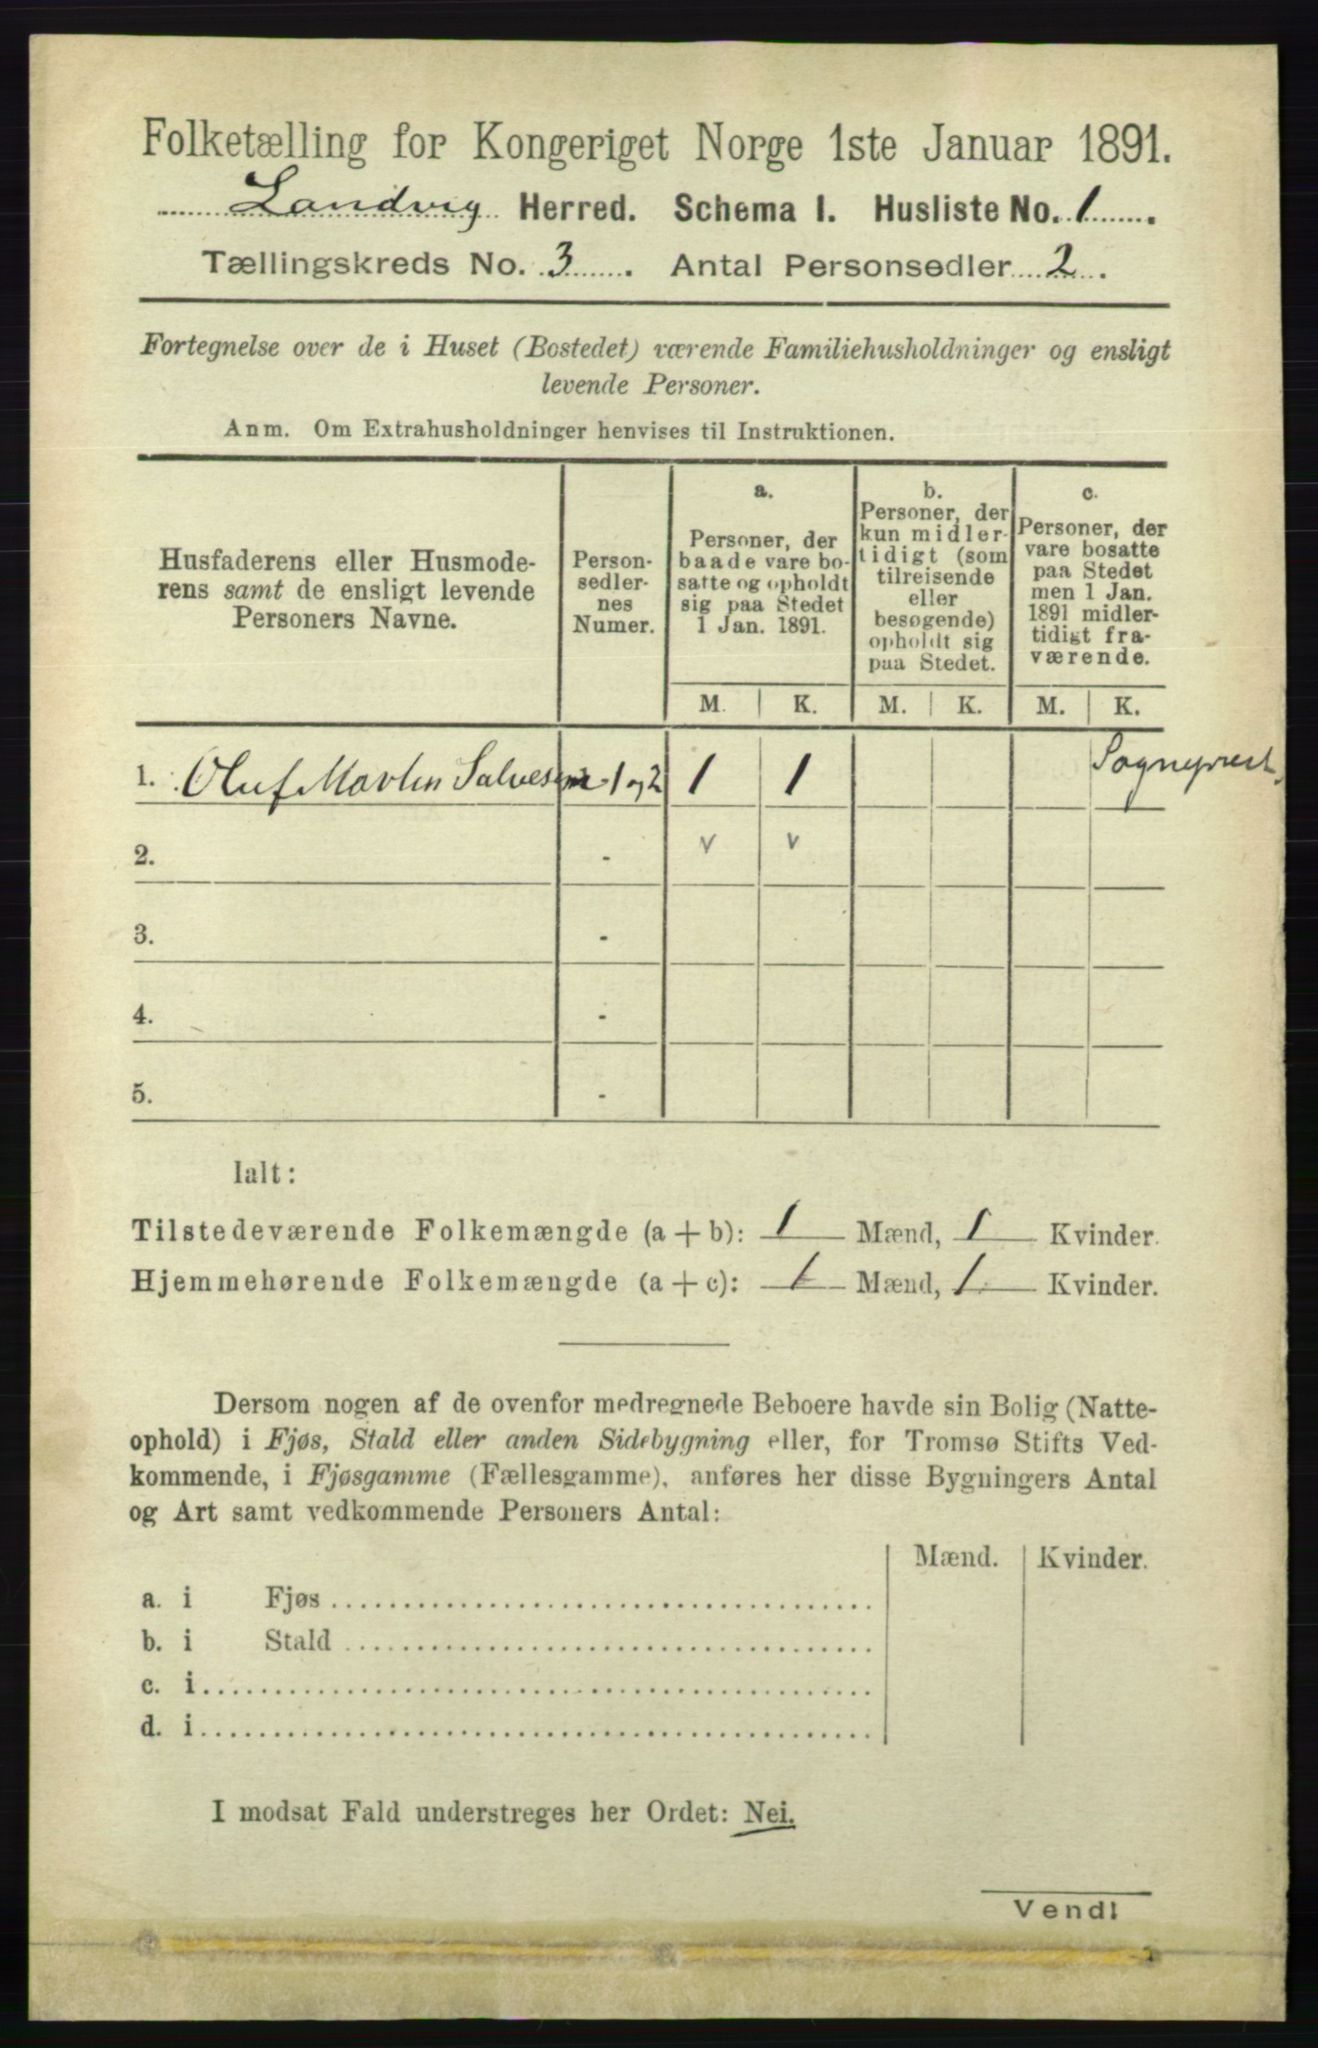 Folketælling for Kongeriget Norge 1ste Januar 1891.
Landvig Herred. Schema I. Husliste No. 1
Tællingskreds No. 3. Antal Personsedler 2.
Fortegnelse over de i Huset (Bostedet) værende Familiehusholdninger og ensligt
levende Personer.
Anm. Om Extrahusholdninger henvises til Instruktionen.
Husfaderens eller Husmode-
rens samt de ensligt levende
Personers Navne.
Person-
sedler-
nes
Numer.
a.
Personer, der
baade vare bo-
satte og opholdt
sig paa Stedet
1 Jan. 1891.
b.
Personer, der
kun midler-
tidigt (som
tilreisende
eller
besøgende)
opholdt sig
paa Stedet.
c.
Personer, der
vare bosatte
paa Stedet
men 1 Jan.
1891 midler-
tidigt fra-
værende.
M. K. M. K. M. K.
1. Oluf Martin Salvesen 1 og 2 1 1 Sogneprest.
2. - v v
3. -
4. -
5. -
Ialt:
Tilstedeværende Folkemængde (a + b): 1 Mænd, 1 Kvinder.
Hjemmehørende Folkemængde (a + c): 1 Mænd, 1 Kvinder.
Dersom nogen af de ovenfor medregnede Beboere havde sin Bolig (Natte-
ophold) i Fjøs, Stald eller anden Sidebygning eller, for Tromsø Stifts Ved-
kommende, i Fjøsgamme (Fællesgamme), anføres her disse Bygningers Antal
og Art samt vedkommende Personers Antal:
Mænd. Kvinder.
a. i Fjøs
b. i Stald
c. i
d. i
I modsat Fald understreges her Ordet: Nei.
Vend!